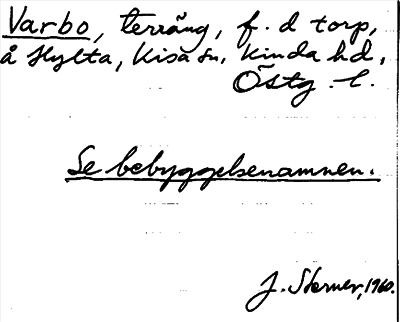 Varbo, terräng, f. d torp,
å Hylta, Kisa sn, Kinda hd,
Östg. l.
Se bebyggelsenamnen.
J. Sterner, 1960.